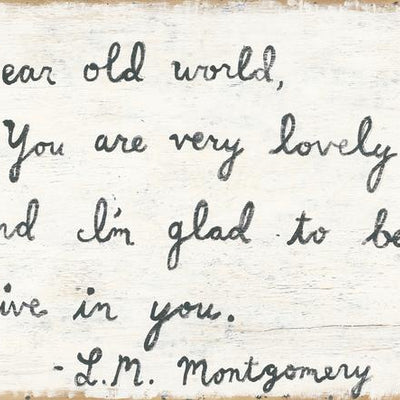 ear old world,
You are very lovely
nd I'm glad to be
ive in you.
-L.M. Montgomery